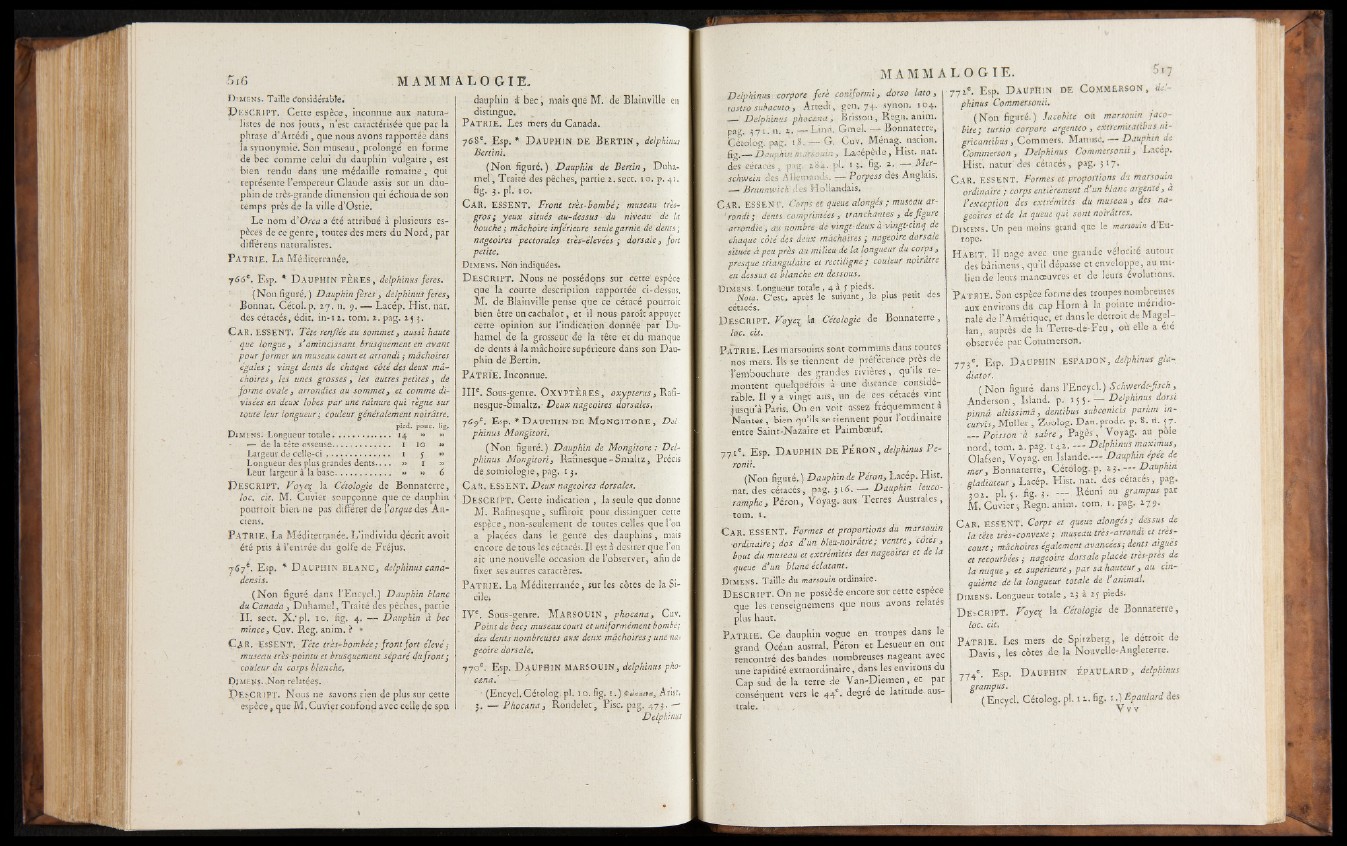 516
MAMMALOGIE.
DIMENS. Taille considérable.
DESCRIPT. Cette espèce, inconnue aux natura-
listes de nos jours, n'est caractérisée que par la
phrase d'Artédi, que nous avons rapportée dans
la synonymie. Son museau, prolongé en forme
de bec comme celui du dauphin vulgaire, est
bien rendu dans une médaille romaine, qui
représente l'empereur Claude assis sur un dau-
phin de très-grande dimension qui échoua de son
temps près de la ville d'Ostie.
Le nom d'Orca a été attribué à plusieurs es-
pèces de ce genre, toutes des mers du Nord, par
différens naturalistes.
PATRIE. La Méditerranée.
766e. Esp. * DAUPHIN FÈRES, delphinus feres.
(Non figuré.) Dauphin fères, delphinus feres,
Bonnat. Cétol. p. 27. n. 9. — Lacép. Hist. nat.
des cétacés, édit. in-12. tom. 2. pag. 253.
CAR. ESSENT. Tête renflée au sommet, aussi haute
que longue, s'amincissant brusquement en avant
pour former un museau court et arrondi; mâchoires
égales; vingt dents de chaque côté des deux mâ-
choires, les unes grosses, les autres petites, de
forme ovale, arrondies au sommet, et comme di-
visées en deux lobes par une rainure qui règne sur
toute leur longueur; couleur généralement noirâtre.
pied. pouc. lig.
DIMENS. Longueur totale............. 14 » »
— de la tête osseuse............. 1 10 »
Largeur de celle-ci............. 1 5 »
Longueur des plus grandes dents.... » 1 »
Leur largeur à la base............ » » 6
DESCRIPT. Voyez la Cétologie de Bonnaterre,
loc. cit. M. Cuvier soupçonne que ce dauphin
pourroit bien ne pas différer de l'orque des An-
ciens.
PATRIE. La Méditerranée. L'individu décrit avoit
été pris à l'entrée du golfe de Fréjus.
767e. Esp. * DAUPHIN BLANC, delphinus cana-
densis.
(Non figuré dans l'Encycl.) Dauphin blanc
du Canada, Duhamel, Traité des pêches, partie
II. sect. X. pl. 10. fig. 4. — Dauphin à bec
mince, Cuv. Reg. anim. ?
CAR. ESSENT. Tête très-bombée; front fort élevé;
museau très-pointu et brusquement séparé du front;
couleur du corps blanche.
DIMENS. Non relatées.
DESCRIPT. Nous ne savons rien de plus sur cette
espèce, que M. Cuvier confond avec celle de son
dauphin à bec, mais que M. de Blainville en
distingue.
PATRIE. Les mers du Canada.
768e. Esp. * DAUPHIN DE BERTIN, delphinus
Bertini.
(Non figuré.) Dauphin de Bertin, Duha-
mel, Traité des pêches, partie 2. sect. 10. p. 41.
fig. 3. pl. 10.
CAR. ESSENT. Front très-bombé; museau très-
gros; yeux situés au-dessus du niveau de la
bouche; mâchoire inférieure seule garnie de dents;
nageoires pectorales très-élevées; dorsale, fort
petite.
DIMENS. Non indiquées.
DESCRIPT. Nous ne possédons sur cette espèce
que la courte description rapportée ci-dessus.
M. de Blainville pense que ce cétacé pourroit
bien être un cachalot, et il nous paroît appuyer
cette opinion sur l'indication donnée par Du-
hamel de la grosseur de la tête et du manque
de dents à la mâchoire supérieure dans son Dau-
phin de Bertin.
PATRIE. Inconnue.
IIIe. Sous-genre. OXYPTÈRES, oxypterus, Rafi-
nesque-Smaltz. Deux nageoires dorsales.
769e. Esp. * DAUPHIN DE MONGITORE, Del
phinus Mongitori.
(Non figuré.) Dauphin de Mongitore: Del-
phinus Mongitori, Rafinesque-Smaltz, Précis
de somiologie, pag. 13.
CAR. ESSENT. Deux nageoires dorsales.
DESCRIPT. Cette indication, la seule que donne
M. Rafinesque, suffiroit pour distinguer cette
espèce, non-seulement de toutes celles que l'on
a placées dans le genre des dauphins, mais
encore de tous les cétacés. Il est à desirer que l'on
ait une nouvelle occasion de l'observer, afin de
fixer ses autres caractères.
PATRIE. La Méditerranée, sur les côtes de la Si-
cile.
IVe. Sous-genre. MARSOUIN, phocæna, Cuv.
Point de bec; museau court et uniformément bombé;
des dents nombreuses aux deux mâchoires; une na-
geoire dorsale.
770e. Esp. DAUPHIN MARSOUIN, delphinus pho-
cæna.
(Encycl. Cétolog. pl. 10. fig. 1.) Arist.
3. — Phocæna, Rondelet, Pisc. pag. 473. —
Delphinus
MAMMALOGIE.
517
Delphinus corpore ferè coniformi, dorso lato,
rostro subacuto, Artedi, gen. 74. synon. 104.
— Delphinus phocæna, Brisson, Regn. anim.
pag. 371. n. 2. — Linn. Gmel. — Bonnaterre,
Cétolog. pag. 18. — G. Cuv. Ménag. nation.
fig. — Dauphin marsouin, Lacépède, Hist. nat.
des cétacés, pag. 282. pl. 13. fig. 2. — Mer-
schwein des Allemands. — Porpess des Anglais.
— Bruinwisch des Hollandais.
CAR. ESSENT. Corps et queue alongés; museau ar-
rondi; dents comprimées, tranchantes, de figure
arrondie, au nombre de vingt-deux à vingt-cinq de
chaque côté des deux mâchoires; nageoire dorsale
située à peu près au milieu de la longueur du corps,
presque triangulaire et rectiligne; couleur noirâtre
en dessus et blanche en dessous.
DIMENS. Longueur totale, 4 à 5 pieds.
Nota. C'est, après le suivant, le plus petit des
cétacés.
DESCRIPT. Voyez la Cétologie de Bonnaterre,
loc. cit.
PATRIE. Les marsouins sont communs dans toutes
nos mers. Ils se tiennent de préférence près de
l'embouchure des grandes rivières, qu'ils re-
montent quelquefois à une distance considé-
rable. Il y a vingt ans, un de ces cétacés vint
jusqu'à Paris. On en voit assez fréquemment à
Nantes, bien qu'ils se tiennent pour l'ordinaire
entre Saint-Nazaire et Paimbœuf.
771e. Esp. DAUPHIN DE PÉRON, delphinus Pe-
ronii.
(Non figuré.) Dauphin de Péron, Lacép. Hist.
nat. des cétacés, pag. 316. — Dauphin leuco-
ramphe, Péron, Voyag. aux Terres Australes,
tom. 1.
CAR. ESSENT. Formes et proportions du marsouin
ordinaire; dos d'un bleu-noirâtre; ventre, côtés,
bout du museau et extrémités des nageoires et de la
queue d'un blanc éclatant.
DIMENS. Taille du marsouin ordinaire.
DESCRIPT. On ne possède encore sur cette espèce
que les renseignemens que nous avons relatés
plus haut.
PATRIE. Ce dauphin vogue en troupes dans le
grand Océan austral. Péron et Lesueur en ont
rencontré des bandes nombreuses nageant avec
une rapidité extraordinaire, dans les environs du
Cap sud de la terre de Van-Diemen, et par
conséquent vers le 44e. degré de latitude aus-
trale.
772e. Esp. DAUPHIN DE COMMERSON, del-
phinus Commersonii.
(Non figuré.) Jacobite ou marsouin jaco-
bite; tursio corpore argenteo, extremitatibus ni-
gricantibus, Commers. Manusc. — Dauphin de
Commerson, Delphinus Commersonii, Lacép.
Hist. natur des cétacés, pag. 317.
CAR. ESSENT. Formes et proportions du marsouin
ordinaire; corps entièrement d'un blanc argenté, à
l'exception des extrémités du museau, des na-
geoires et de la queue qui sont noirâtres.
DIMENS. Un peu moins grand que le marsouin d'Eu-
rope.
HABIT. Il nage avec une grande vélocité autour
des bâtimens, qu'il dépasse et enveloppe, au mi-
lieu de leurs manœuvres et de leurs évolutions.
PATRIE. Son espèce forme des troupes nombreuses
aux environs du cap Horn à la pointe méridio-
nale de l'Amérique, et dans le détroit de Magel-
lan, auprès de la Terre-de-Feu, où elle a été
observée par Commerson.
773e. Esp. DAUPHIN ESPADON, delphinus gla-
diator.
(Non figuré dans l'Encycl.) Schwerde-fisch,
Anderson, Island. p. 155. — Delphinus dorsi
pinnâ altissimâ, dentibus subconicis parùm in-
curvis, Muller, Zoolog. Dan. prodr. p. 8. n. 57.
— Poisson à sabre, Pagès, Voyag. au pôle
nord, tom. 2. pag. 142. — Delphinus maximus,
Olafsen, Voyag. en Islande. — Dauphin épée de
mer, Bonnaterre, Cétolog. p. 23. — Dauphin
gladiateur, Lacép. Hist. nat. des cétacés, pag.
302. pl. 5. fig. 3. — Réuni au grampus par
M. Cuvier, Regn. anim. tom. 1. pag. 279.
CAR. ESSENT. Corps et queue alongés; dessus de
la tête très-convexe; museau très-arrondi et très-
court; mâchoires également avancées; dents aiguës
et recourbées; nageoire dorsale placée très-près de
la nuque, et supérieure, par sa hauteur, au cin-
quième de la longueur totale de l'animal.
DIMENS. Longueur totale, 23 à 25 pieds.
DESCRIPT. Voyez la Cétologie de Bonnaterre,
loc. cit.
PATRIE. Les mers de Spitzberg, le détroit de
Davis, les côtes de la Nouvelle-Angleterre.
774e. Esp. DAUPHIN ÉPAULARD, delphinus
grampus.
(Encycl. Cétolog. pl. 12. fig. 1.) Epaulard des
V v v